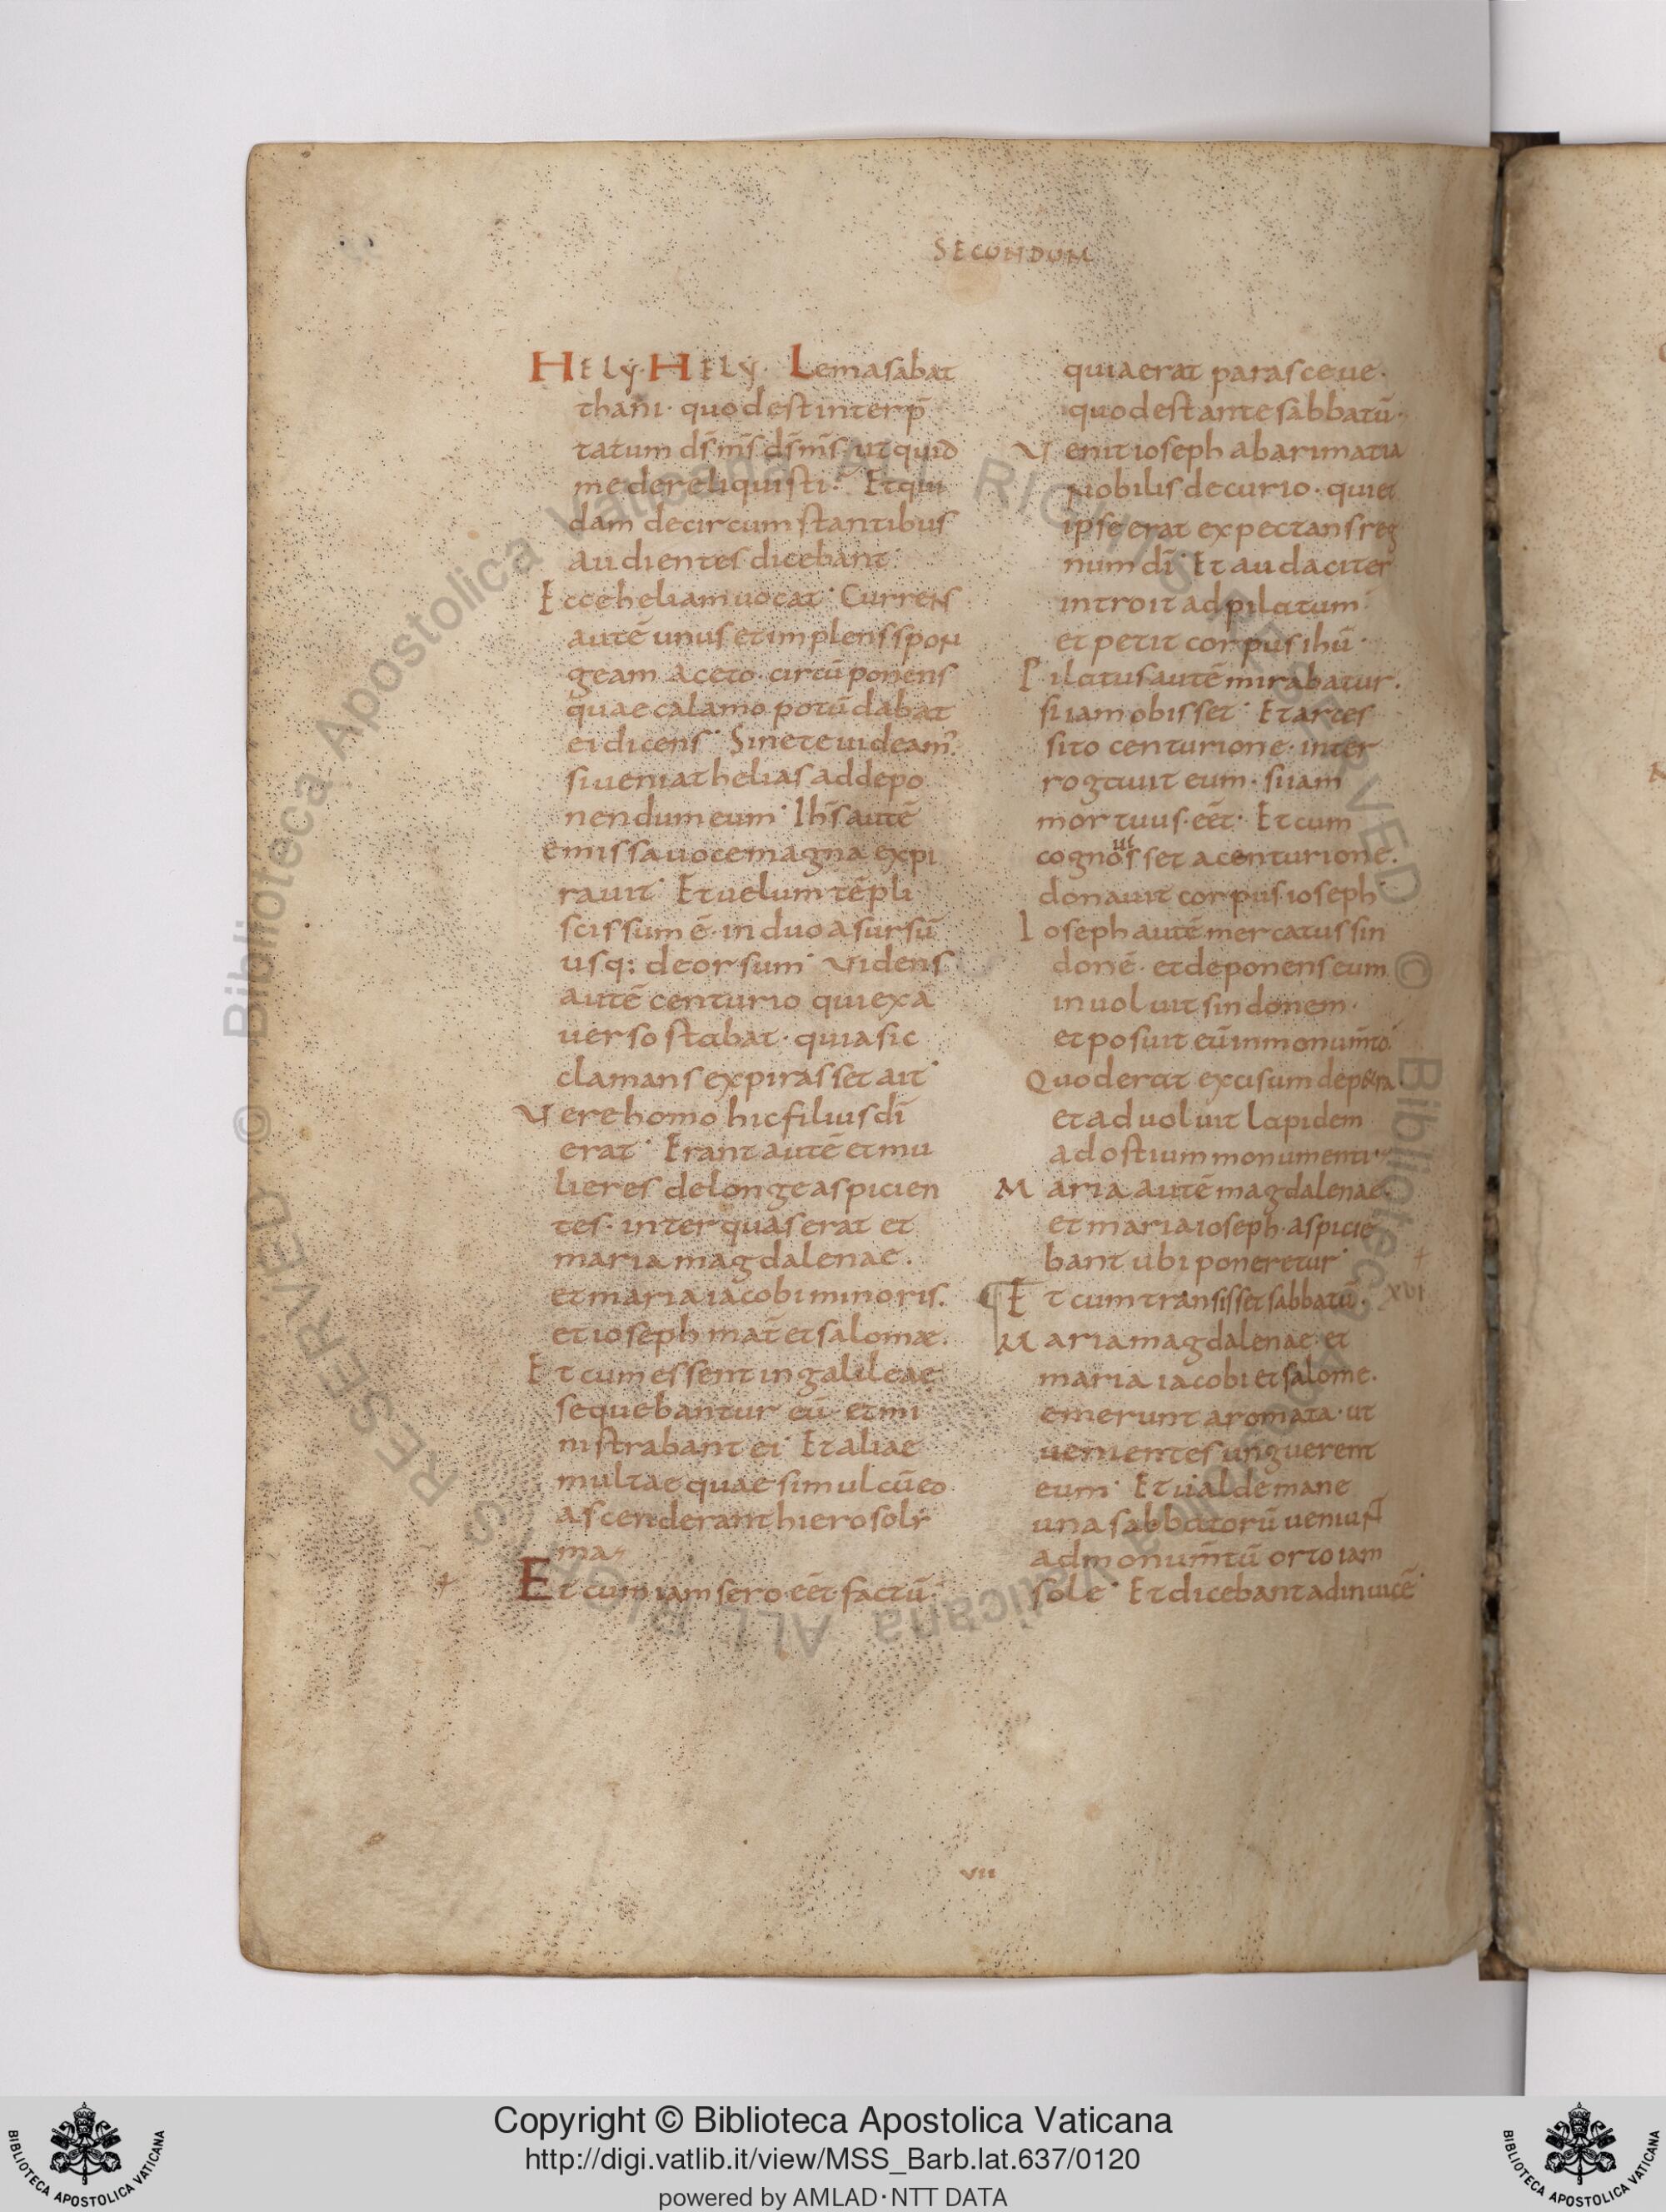 SECONDUM
HELY· HELY· Lemasabat
thani· quodest interp̄
tatum ds̄ ms̄ ds̄ ms̄ ut quid
me dereliquisti· Et qui
dam de circumstantibus
audientes dicebant·
Ecce heliam uocat· Currens
autē unus et implens spon
geam aceto· cirtū ponens
quae calamo potū dabat
ei dicens· Sinete uideam?
si ueniat helias ad depo
nendum eum· Ihs̄ autē
emissa uoce magna expi
rauit· Et uelum tēpli
scissum ē· in duo a sursū
usq: deorsum· Videns
autē centurio qui exa
uerso stabat· quia sic
clamans expirasset ait·
Vere homo hic filius dī
erat· Erant autē et mu
lieres de longe aspicien
tes· inter quas erat et
maria magdalenae·
et maria iacobi minoris·
et ioseph mat̄ et salomæ·
Et cum essent in galileae
sequebantur eū· et mi
nistrabant ei· Et aliae
multae quae simul cū eo
ascenderant hierosoly
mas
Et cum iam sero eēt factū·
quia erat parasceue·
quod est ante sabbatū·
Venit ioseph ab arimatia
nobilis decurio· qui et
ipse erat expectans reg
num dī· Et audaciter
introit ad pilatum
et petit corpus ihū·
Pilatus autē mirabatur·
si iam obisset· Et artes
sito centurione· inter
rogauit eum· si iam
mortuus· eēt· Et cum
ui
cognosset a centurione·
donauit corpus ioseph·
Ioseph autē mercatus sin
donē· et deponens eum
inuoluit sindonem·
et posuit eū in monum̄to·
Quod erat excisum de petra·
et aduoluit lapidem
ad ostium monumenti·
Maria autē magdalenae·
et maria ioseph· aspicie
bant ubi poneretur·
Et cum transisset sabbatū· xvi
Maria magdalenae· et
maria iacobi et salome·
emerunt aromata· ut
uenientes unguerent
eum· Et ualde mane
una sabbatorū ueniunt
ad monum̄tū orto iam
sole· Et dicebant ad inuicē·
vii
© Biblioteca Apostolica Vaticana ALL RIGHTS RESERVED © Biblioteca Apostolica Vaticana ALL RIGHTS RESERVED
BIBLIOTECA APOSTOLICA VATICANA
Copyright © Biblioteca Apostolica Vaticana
http://digi.vatlib.it/view/MSS_Barb.lat.637/0120
powered by AMLAD·NTT DATA
BIBLIOTECA APOSTOLICA VATICANA